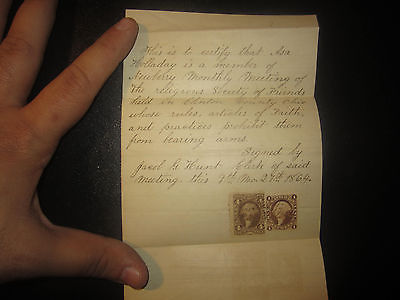 This is to certify that Asa
Holladay is a member of
Newberry Monthly Meeting of
the religious Society of Friends
held in Clinton County Ohio
whose rules, articles of Faith,
and practices prohibit them
from bearing arms.
Signed by
Jacob G Hunt Clerk of said
Meeting this 9th Mo. 27th 1864.